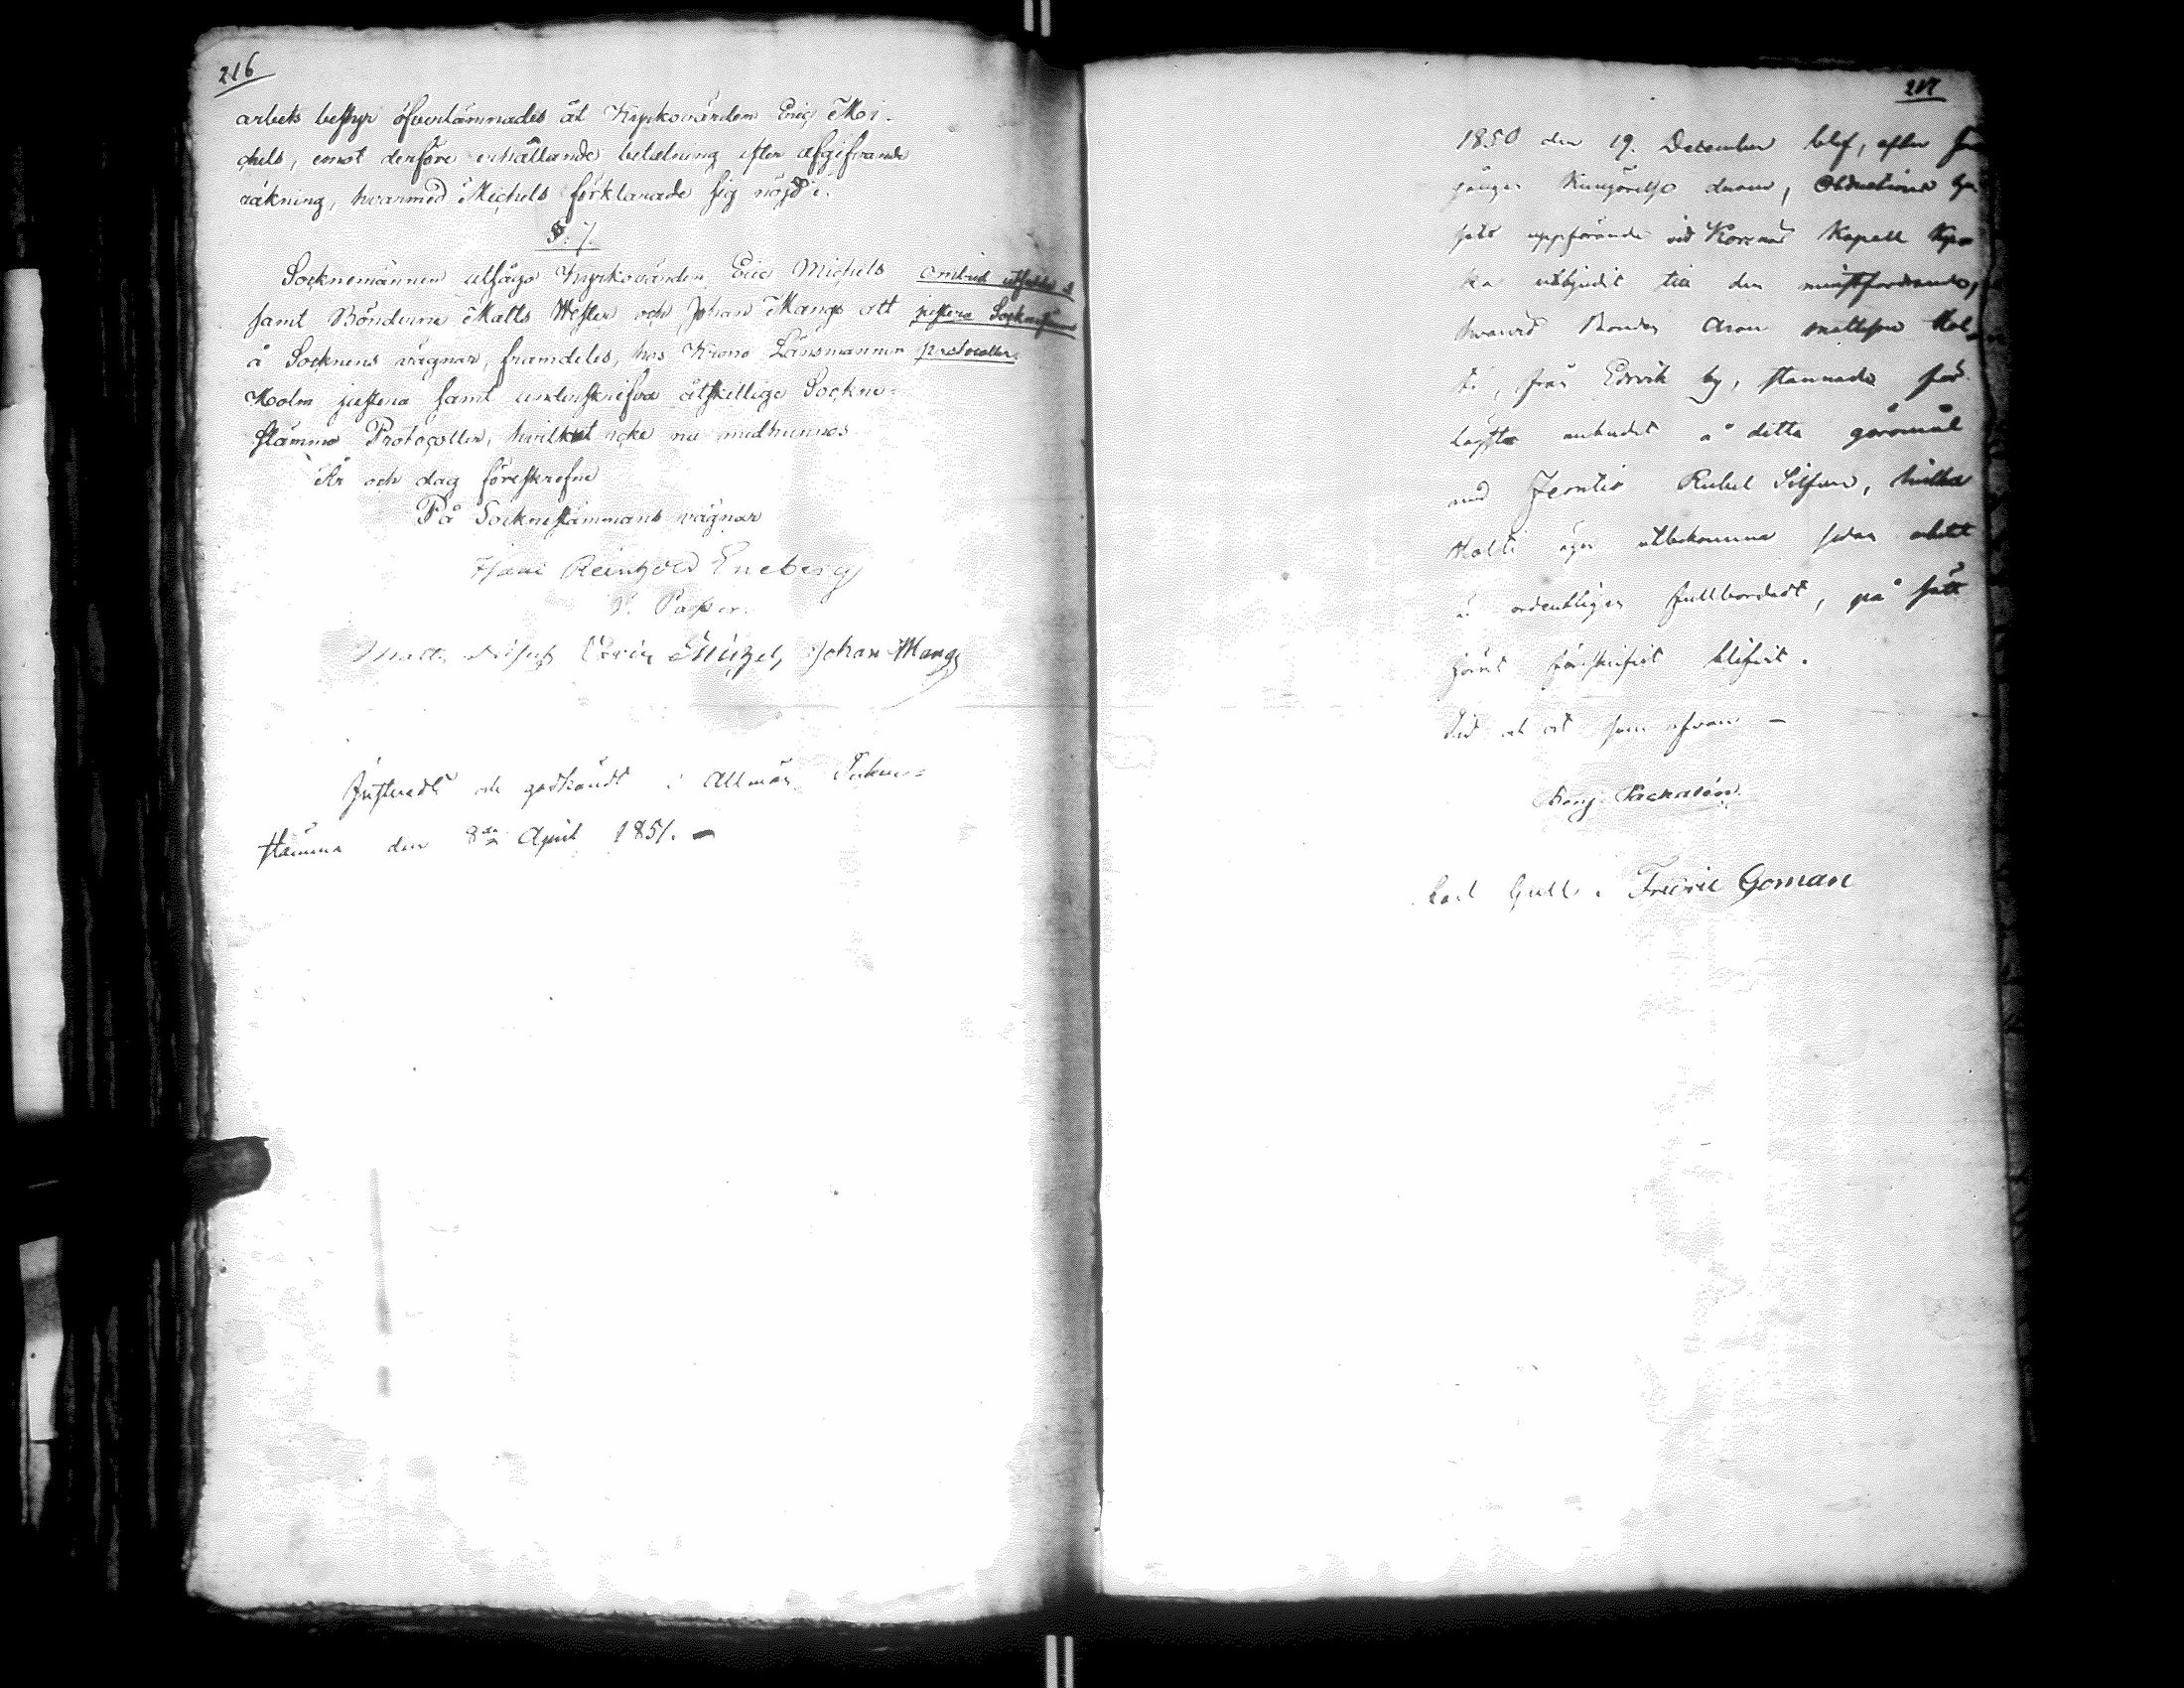 216
arbets bestyr öfverlämnades åt Kyrkovärden Eric Mi-
chels, emot derföre erhållande betalning efter afgifvande
räkning, hvarmed Michels förklarade sig nöjd.
§. 7.
Socknemännen utsågo Kyrkovärden Eric Michels
samt Bönderne Matts Wester och Johan Mangs att
å Socknens vägnar, framdeles, hos Krono Länsmannen
Holm justera samt underskrifva åtskillige Sockne-
stämmo Protocoller, hvilket icke nu medhunnes.
År och dag föreskrefne
På Socknestämmans vägnar
Reinhold Eneberg
Pastor.
Matts Eric Michels Johan Mangs
Ombud utsedde at
justera Sockenstämmo
protocoller.
Justeradt och godkändt i Allmän Sokne-
stämma den 8de April 1851. —
217
1850 den 19. December blef, efter
gången Kungörelse derom, Obductions
uppförande vid Korsnäs Kapell Kyr-
ka utbjudit till den minstfordrande,
hvarvid Bonden Aron Mattsson Hol-
ti, från Edsvik by, stannade för
lägsta anbudet å detta göromål
med Rubel Silfver, hvilka
Holti äger utbekomma sedan arbetet
är ordentligen fullbordadt, på sätt
föreskrifvit blifvit.
Tid och ort som ofvan —
Carl Gull. Fredric Goman